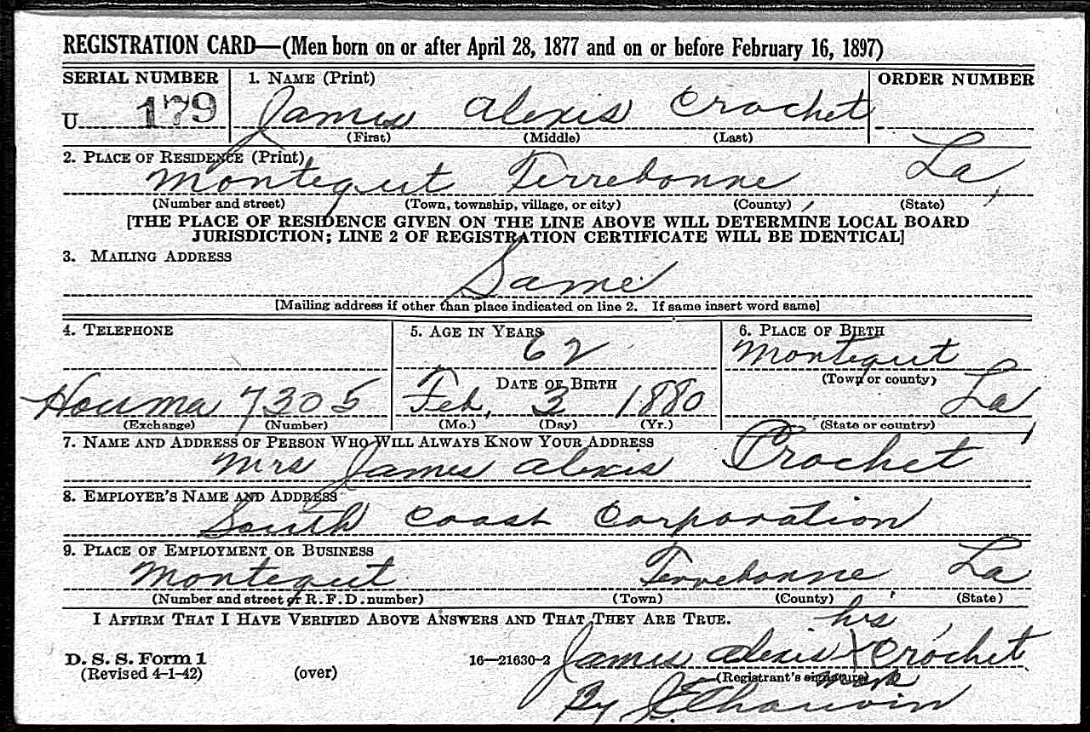 REGISTRATION CARD—(Men born on or after April 28, 1877 and on or before February 16, 1897)
SERIAL NUMBER 1. NAME (Print) ORDER NUMBER
U 179 James Alexis Crochet
(First) (Middle) (Last)
2. PLACE OF RESIDENCE (Print)
Montegut Terrebonne, La,
(Number and street) (Town, township, village, or city) (County) (State)
[THE PLACE OF RESIDENCE GIVEN ON THE LINE ABOVE WILL DETERMINE LOCAL BOARD
JURISDICTION; LINE 2 OF REGISTRATION CERTIFICATE WILL BE IDENTICAL]
3. MAILING ADDRESS
Same
[Mailing address if other than place indicated on line 2. If same insert word same]
4. TELEPHONE 5. AGE IN YEARS 6. PLACE OF BIRTH
62 Montegut
DATE OF BIRTH (Town or county)
Houma 7305 Feb, 3 1880 La,
(Exchange) (Number) (Mo.) (Day) (Yr.) (State or country)
7. NAME AND ADDRESS OF PERSON WHO WILL ALWAYS KNOW YOUR ADDRESS
Mrs James Alexis Crochet
8. EMPLOYER'S NAME AND ADDRESS
South Coast Corporation
9. PLACE OF EMPLOYMENT OR BUSINESS
Montegut Terrebonne La
(Number and street or R. F. D. number) (Town) (County) (State)
I AFFIRM THAT I HAVE VERIFIED ABOVE ANSWERS AND THAT THEY ARE TRUE.
his
James Alexis X Crochet
D. S. S. Form 1 16—21630-2 (Registrant's signature) mark
(Revised 4-1-42) (over)
By J E Chauvin